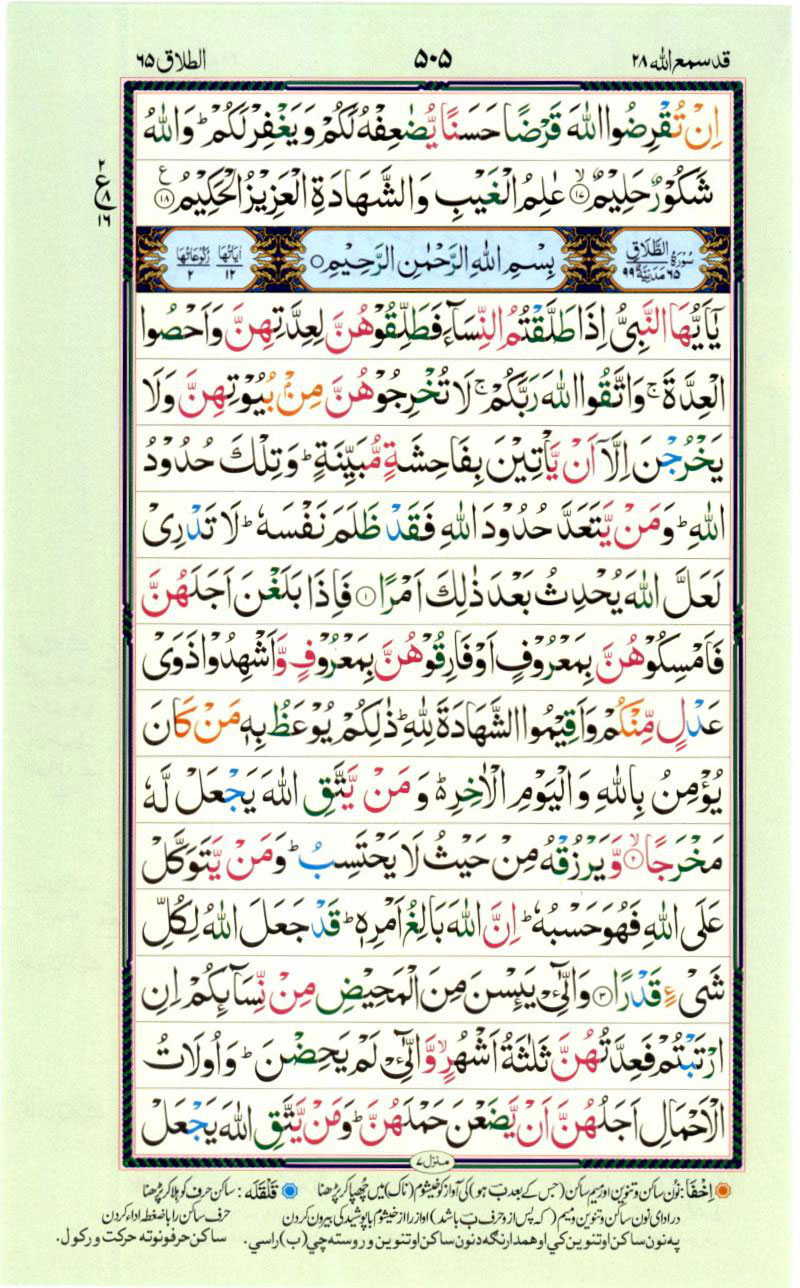 قد سمع الله ٢٨ ٥٠٥ الطلاق ٦٥
اِنْ تُقْرِضُوا اللّٰهَ قَرْضًا حَسَنًا يُّضٰعِفْهُ لَكُمْ وَيَغْفِرْ لَكُمْ ؕ وَاللّٰهُ
شَكُوْرٌ حَلِيْمٌ ۙ﴿١٧﴾ عٰلِمُ الْغَيْبِ وَالشَّهَادَةِ الْعَزِيْزُ الْحَكِيْمُ ﴿١٨﴾ ع
٢ ع ٨ ١٦
سُوْرَةُ الطَّلَاق مَدَنِيَّةٌ ٦٥ ٩٩ بِسْمِ اللّٰهِ الرَّحْمٰنِ الرَّحِيْمِ ○ اٰيَاتُهَا ١٢ رُكُوْعَاتُهَا ٢
يٰۤاَيُّهَا النَّبِىُّ اِذَا طَلَّقْتُمُ النِّسَآءَ فَطَلِّقُوْهُنَّ لِعِدَّتِهِنَّ وَاَحْصُوا
الْعِدَّةَ ۚ وَاتَّقُوا اللّٰهَ رَبَّكُمْ ۚ لَا تُخْرِجُوْهُنَّ مِنْۢ بُيُوْتِهِنَّ وَلَا
يَخْرُجْنَ اِلَّاۤ اَنْ يَّاْتِيْنَ بِفَاحِشَةٍ مُّبَيِّنَةٍ ؕ وَتِلْكَ حُدُوْدُ
اللّٰهِ ؕ وَمَنْ يَّتَعَدَّ حُدُوْدَ اللّٰهِ فَقَدْ ظَلَمَ نَفْسَهٗ ؕ لَا تَدْرِىْ
لَعَلَّ اللّٰهَ يُحْدِثُ بَعْدَ ذٰلِكَ اَمْرًا ﴿١﴾ فَاِذَا بَلَغْنَ اَجَلَهُنَّ
فَاَمْسِكُوْهُنَّ بِمَعْرُوْفٍ اَوْ فَارِقُوْهُنَّ بِمَعْرُوْفٍ وَّاَشْهِدُوْا ذَوَىْ
عَدْلٍ مِّنْكُمْ وَاَقِيْمُوا الشَّهَادَةَ لِلّٰهِ ؕ ذٰلِكُمْ يُوْعَظُ بِهٖ مَنْ كَانَ
يُؤْمِنُ بِاللّٰهِ وَالْيَوْمِ الْاٰخِرِ ؕ۬ وَمَنْ يَّتَّقِ اللّٰهَ يَجْعَلْ لَّهٗ
مَخْرَجًا ۙ﴿٢﴾ وَّيَرْزُقْهُ مِنْ حَيْثُ لَا يَحْتَسِبُ ؕ وَمَنْ يَّتَوَكَّلْ
عَلَى اللّٰهِ فَهُوَ حَسْبُهٗ ؕ اِنَّ اللّٰهَ بَالِغُ اَمْرِهٖ ؕ قَدْ جَعَلَ اللّٰهُ لِكُلِّ
شَىْءٍ قَدْرًا ﴿٣﴾ وَالّٰٓـِٔىْ يَئِسْنَ مِنَ الْمَحِيْضِ مِنْ نِّسَآئِكُمْ اِنِ
ارْتَبْتُمْ فَعِدَّتُهُنَّ ثَلٰثَةُ اَشْهُرٍ ۙ وَّالّٰٓـِٔىْ لَمْ يَحِضْنَ ؕ وَاُولَاتُ
الْاَحْمَالِ اَجَلُهُنَّ اَنْ يَّضَعْنَ حَمْلَهُنَّ ؕ وَمَنْ يَّتَّقِ اللّٰهَ يَجْعَلْ
منزل ٧
اِخْفَا: نُون ساکن و تنوین اور میم ساکن (جس کے بعد ب ہو) کی آواز کو خیشوم (ناک) میں چھپا کر پڑھنا قَلْقَلَه: ساکن حرف کو ہلا کر پڑھنا
در ادای نون ساکن و تنوین و میم (که پس از و حرف ب باشد) آواز را از خیشوم با پوشیدگی بیرون کردن حرف ساکن را با ضغطه ادا کردن
په نون ساکن او تنوین کی او همدارنگه د نون ساکن او تنوین و روسته چی (ب) راسی. ساکن حرفونو ته حرکت ورکول.